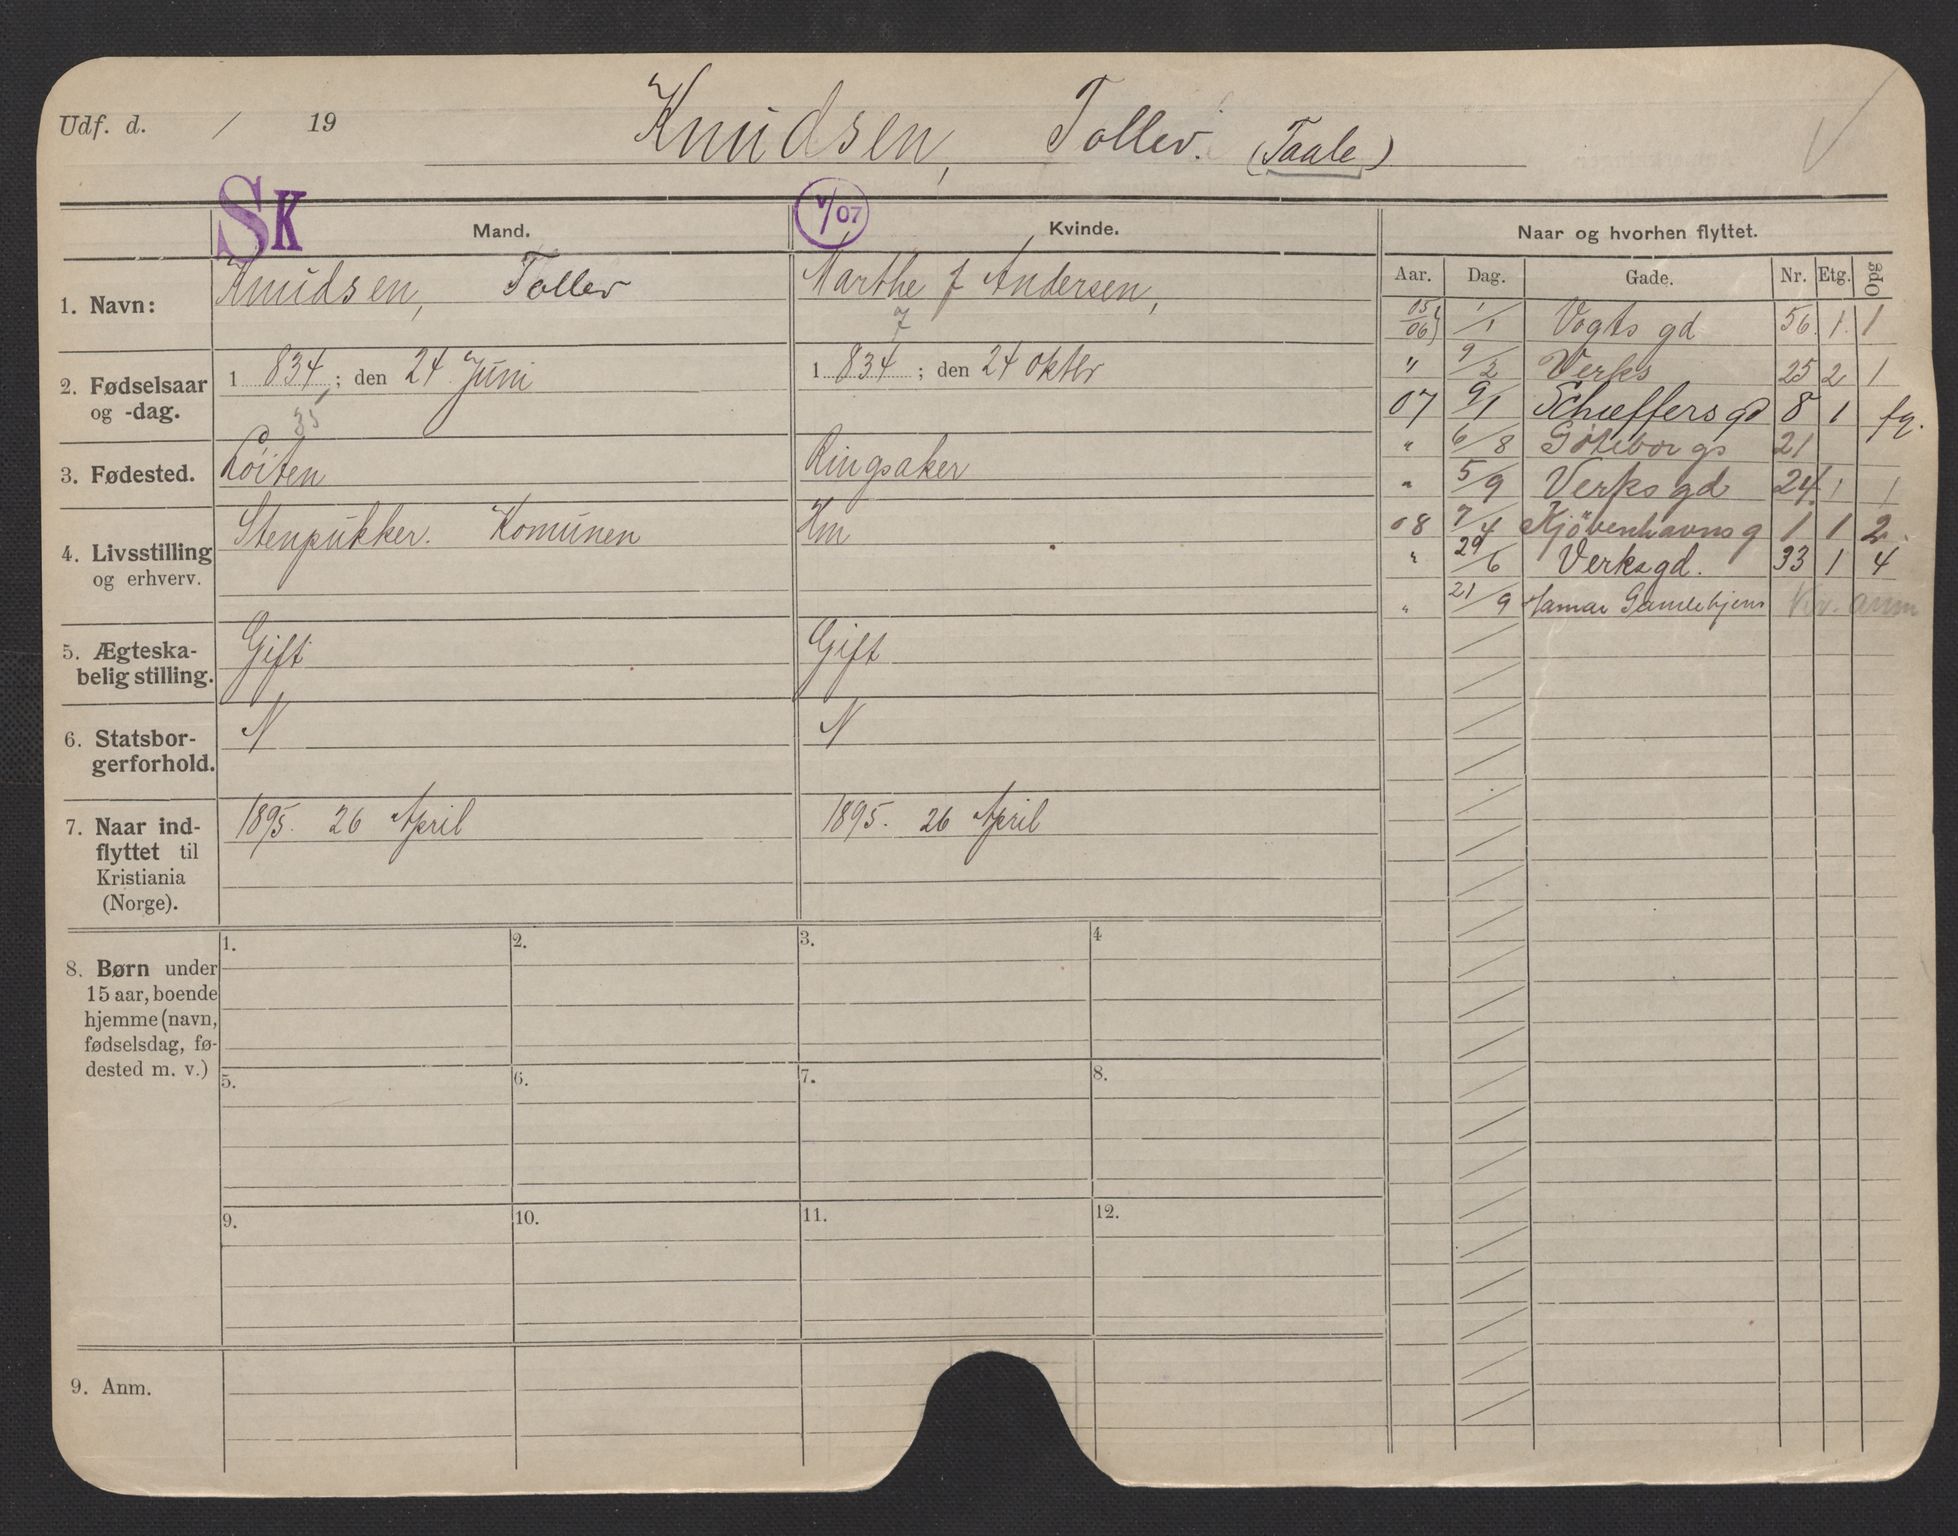 Udf. d. / 19
Knudsen, Tollev. (Taale)
SK
V/07
Mand.
Kvinde.
Naar og hvorhen flyttet.
Aar. Dag. Gade. Nr. Etg. Opg
1. Navn:
Knudsen, Tollev
Marthe f Andersen,
2. Fødselsaar og -dag.
1 834 ; den 24 Juni
35
7
1 834 ; den 24 oktbr
3. Fødested.
Löiten
Ringsaker
4. Livsstilling og erhverv.
Stenpukker. Komunen
Hm
5. Ægteska-
belig stilling.
Gift
Gift
6. Statsbor-
gerforhold.
N
N
7. Naar ind-
flyttet til
Kristiania
(Norge).
1895. 26 April
1895. 26 April
05/06 1/1 Vogts gd 56. 1. 1
" 9/2 Verks 25 2 1
07 9/1 Schæffers gd 8 1 fg.
" 6/8 Göteborgs 21
" 5/9 Verks gd 24 1 1
08 7/4 Kjöbenhavns g 1 1 2.
" 29/6 Verksgd. 33 1 4
" 21/9 Hamar Gamlehjem
8. Børn under
15 aar, boende
hjemme (navn,
fødselsdag, fø-
dested m. v.)
1. 2. 3. 4
5. 6. 7. 8.
9. 10. 11. 12.
9. Anm.